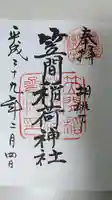 奉拝
笠間稲荷神社
平成二十九年二月四日